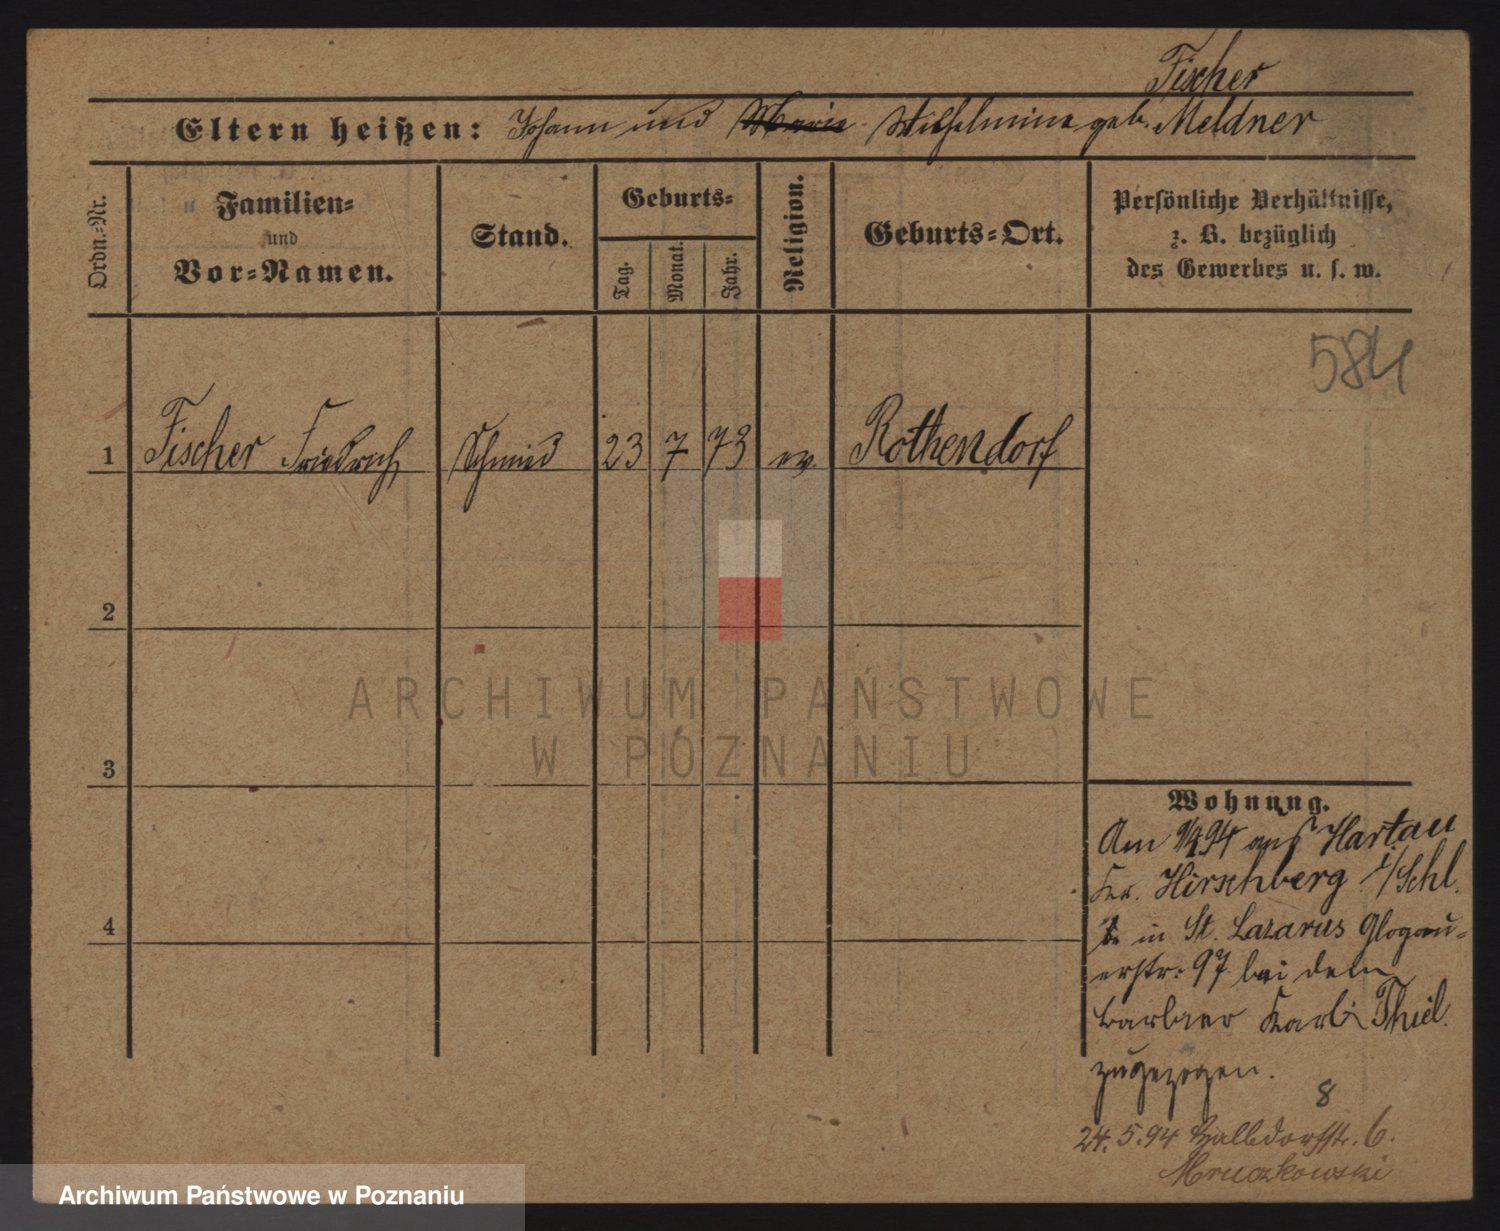 Fischer
Eltern heißen: Johann und Marie Wilhelmine geb. Meldner
Ordn.-Nr.
Familien-
und
Vor-Namen.
Stand.
Geburts-
Tag.
Monat.
Jahr.
Religion.
Geburts-Ort.
Persönliche Verhältnisse,
z. B. bezüglich
des Gewerbes u. s. w.
584
1 Fischer Friedrich Schmied 23 7 73 ev. Rothendorf
2
3
4
ARCHIWUM PAŃSTWOWE
W POZNANIU
Wohnung.
Am 94 aus Hartau
Kr. Hirschberg i/Schl.
in St. Lazarus Glogau-
erstr. 97 bei dem
Barbier Thiel
zugezogen.
8
24.5.94 Halbdorfstr. 6.
Mruczkowski
Archiwum Państwowe w Poznaniu